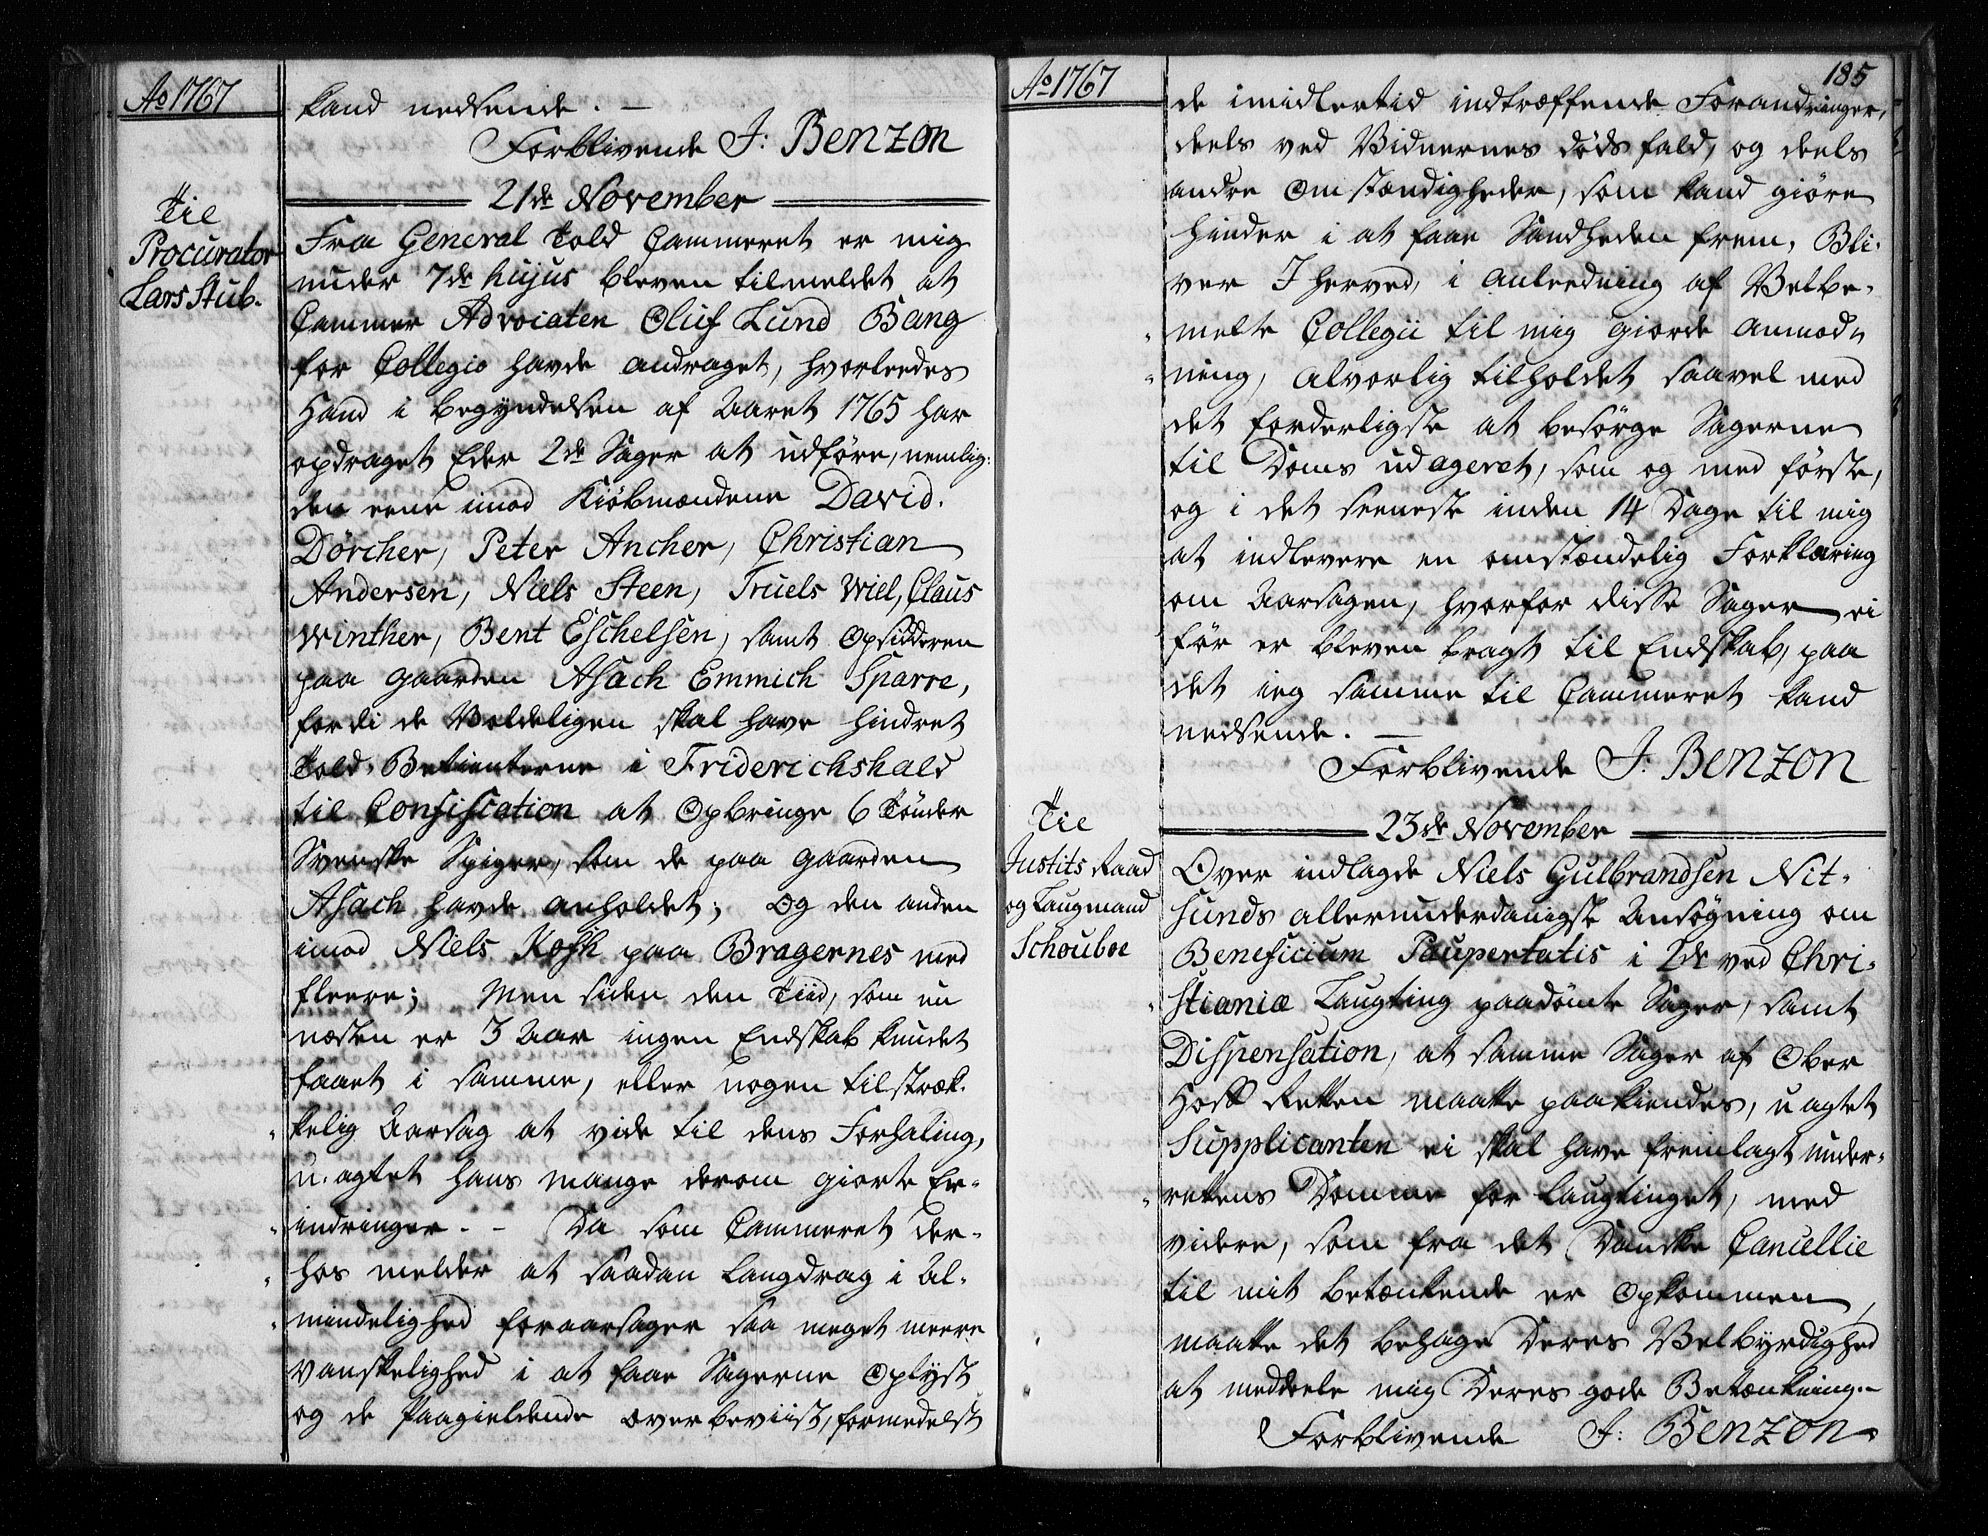 Ao 1767
kand nedsende. —
Forblivende J: Benzon
21de November
Til
Procurator
Lars Stub.
Fra General Told Cammeret er mig
under 7de hujus bleven tilmeldet at
Cammer Advocaten Oluf Lund Bang
for Collegio havde andraget, hvorleedes
Hand i begyndelsen af Aaret 1765 har
opdraget Eder 2de Sager at udföre, nemlig:
den eene imod Kiöbmændene David.
Dörcher, Peter Ancher, Christian
Andersen, Niels Steen, Truels Wiel, Claus
Winther, Bent Eschelsen, samt Opsidderen
paa gaarden Asach Emmich Sparre,
fordi de Voldeligen skal have hindret
Told-Betienterne i Friderichshald
til Confiscation at Opbringe 6 Tönder
Svenske Spiger, som de paa gaarden
Asach havde anholdet; Og den anden
imod Niels Kosk paa Bragernes med
fleere; Men siden den Tiid, som nu
næsten er 3 Aar ingen Endskab kundet
faaet i samme, eller nogen tilstræk-
kelig Aarsag at vide til dens Forhaling,
u-agtet hans mange derom giorte Er-
indringer. - Da som Cammeret der-
hos melder at saadan Langdrag i Al-
mindelighed foraarsager saa meget meere
vanskelighed i at faae Sagerne Oplyst
og de Paagieldende overbeviist, formedelst
Ao 1767
185
de imidlertid indtræffende Forandringer,
deels ved Vidnernes dödsfald, og deels
andre Omstændigheder, som kand giöre
hinder i at faae Sandheden frem, Bli-
ver I herved, i anleedning af Velbe-
melte Collegii til mig giorde anmod-
ning, alvorlig tilholdet saavel med
det forderligste at besörge Sagerne
til Doms udageret, som og med förste,
og i det seeneste inden 14 Dage til mig
at indlevere en omstændelig Forklaring
om Aarsagen, hvorfor disse Sager ei
för er bleven bragt til Endskab, paa
det ieg samme til Cammeret kand
nedsende. —
Forblivende J: Benzon
23de November
Til
Justits Raad
og Laugmand
Schouboe
Over indlagde Niels Gulbrandsen Nit-
sunds allerunderdanigste Ansögning om
Beneficium Paupertatis i 2de ved Chri-
stianiæ Laugting paadömte Sager, samt
Dispensation, at samme Sager af Ober
Hoff Retten maatte paakiendes, uagtet
Supplicanten ei skal have fremlagt under-
rettens Domme for Laugtinget, med
videre, som fra det Danske Cancellie
til mit betænkende er Opkommen,
maatte det behage Deres Velbyrdighed
at meddeele mig Deres gode Betænkning.-
Forblivende J: Benzon